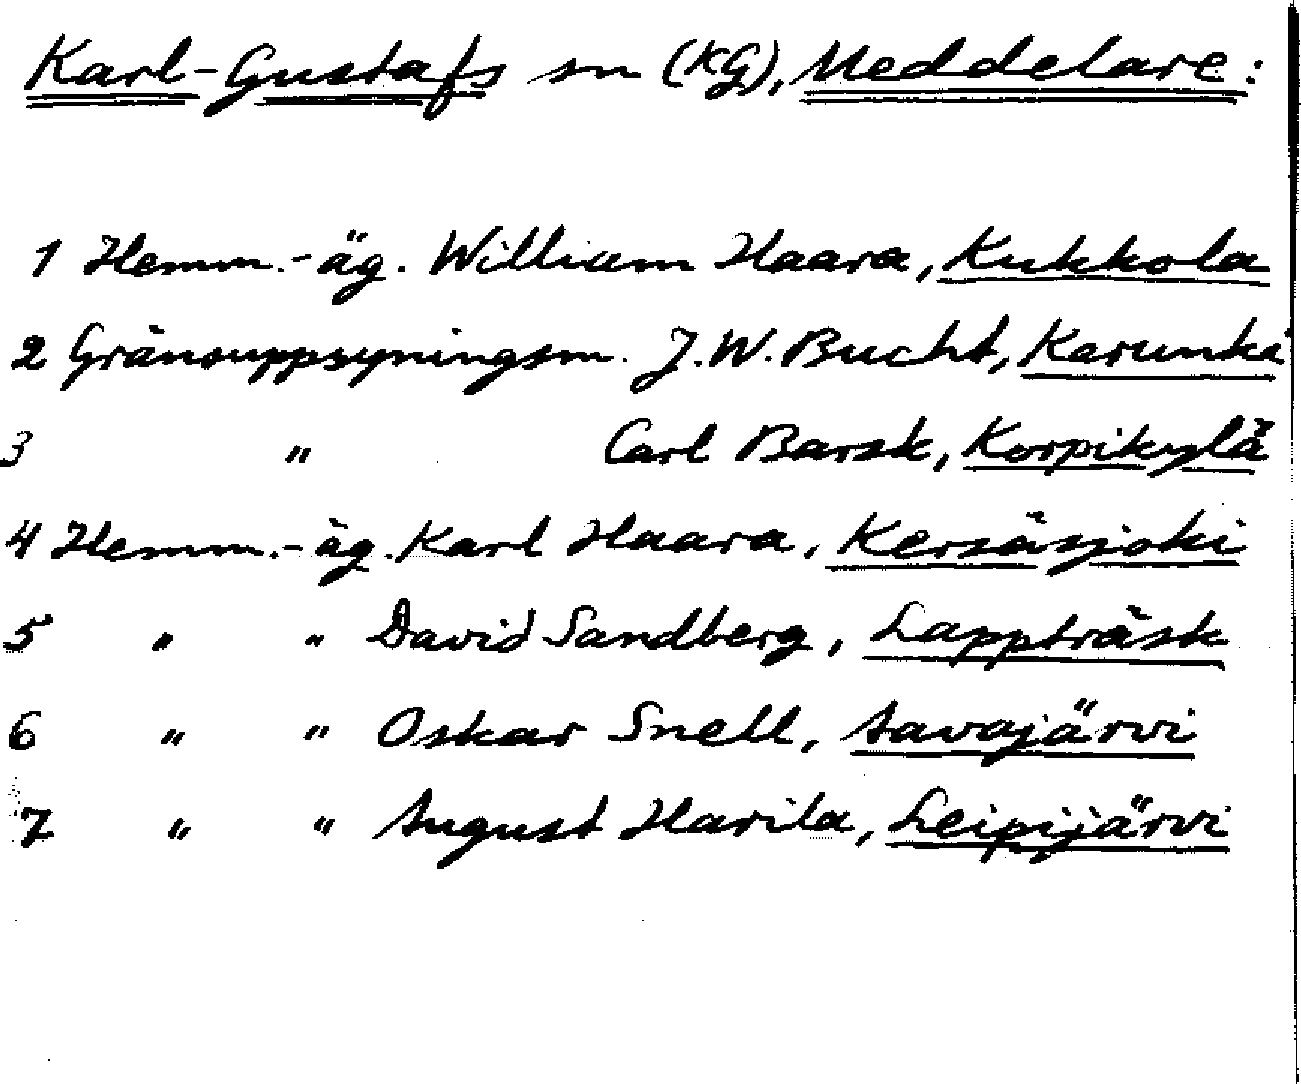 Karl-Gustafs sn (KG), Meddelare:
1 Hemm.-äg. William Haara, Kukkola
2 Gränsuppsyningsm. J.W. Bucht, Karunki
3 " Carl Barsk, Korpikylä
4 Hemm.-äg. Karl Haara, Kersäsjoki
5 " " David Sandberg, Lappträsk
6 " " Oskar Snell, Aavajärvi
7 " " August Harila, Leipijärvi